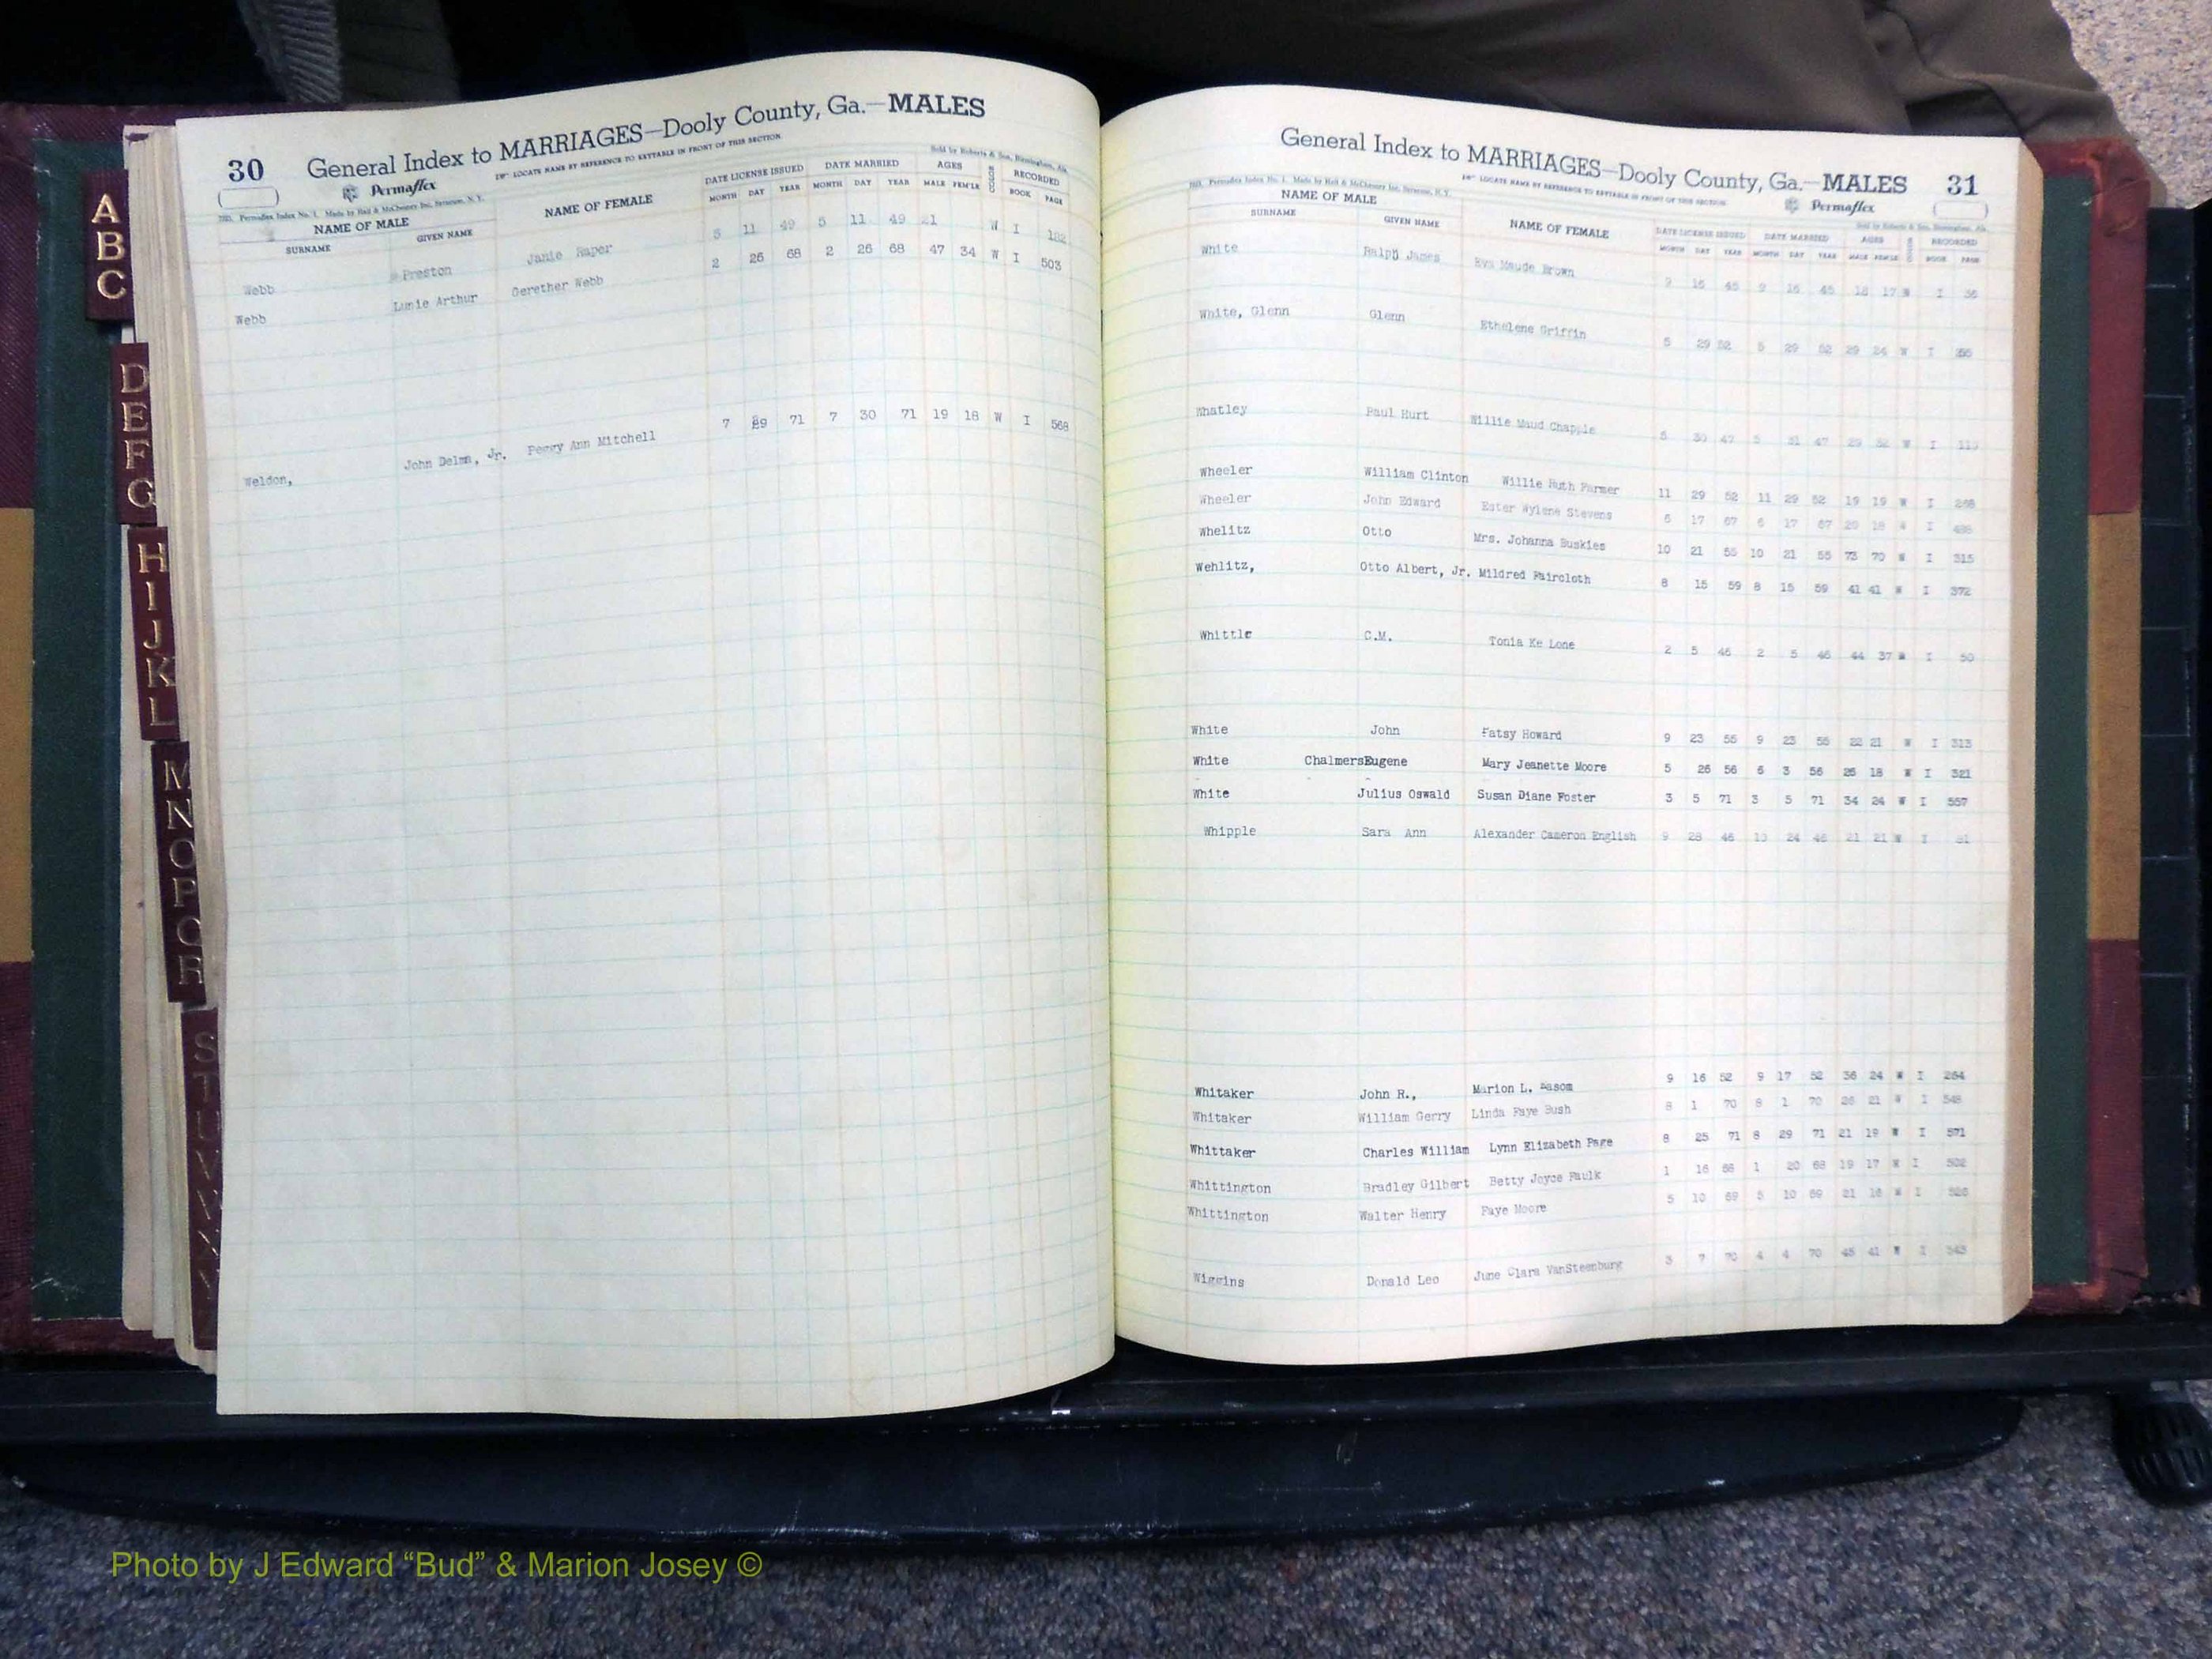 30 General Index to MARRIAGES—Dooly County, Ga.—MALES
Permaflex LOCATE NAME BY REFERENCE TO KEYTABLE IN FRONT OF THIS SECTION
Sold by Roberts & Son, Birmingham, Ala.
NAME OF MALE NAME OF FEMALE DATE LICENSE ISSUED DATE MARRIED AGES COLOR RECORDED
SURNAME GIVEN NAME MONTH DAY YEAR MONTH DAY YEAR MALE FEM'LE BOOK PAGE
Webb Preston Janie Raper 5 11 49 5 11 49 21 W I 182
Webb Lunie Arthur Gerether Webb 2 26 68 2 26 68 47 34 W I 503
Weldon, John Delmn, Jr. Peggy Ann Mitchell 7 29 71 7 30 71 19 18 W I 568
A
B
C
D
E
F
G
H
I
J
K
L
M
N
O
P
Q
R
S
T
U
V
W
X
Y
Z
General Index to MARRIAGES—Dooly County, Ga.—MALES 31
LOCATE NAME BY REFERENCE TO KEYTABLE IN FRONT OF THIS SECTION Permaflex
NAME OF MALE NAME OF FEMALE DATE LICENSE ISSUED DATE MARRIED AGES COLOR RECORDED
SURNAME GIVEN NAME MONTH DAY YEAR MONTH DAY YEAR MALE FEM'LE BOOK PAGE
White Ralph James Eva Maude Brown 9 16 45 9 16 45 18 17 W I 36
White, Glenn Glenn Ethelene Griffin 5 29 52 5 29 52 29 24 W I
Whatley Paul Hurt Willie Maud Chapple 5 30 47 5 31 47 29 32 W I
Wheeler William Clinton Willie Ruth Farmer 11 29 52 11 29 52 19 19 W I 268
Wheeler John Edward Ester Wylene Stevens 6 17 67 6 17 67 20 18 W I 488
Whelitz Otto Mrs. Johanna Buskies 10 21 55 10 21 55 73 70 W I 315
Wehlitz, Otto Albert, Jr. Mildred Faircloth 8 15 59 8 15 59 41 41 W I 372
Whittle C.M. Tonia Ke Lone 2 5 46 2 5 46 44 37 W I 50
White John Patsy Howard 9 23 55 9 23 55 22 21 W I 313
White Chalmers Eugene Mary Jeanette Moore 5 26 56 6 3 56 25 18 W I 321
White Julius Oswald Susan Diane Foster 3 5 71 3 5 71 34 24 W I 557
Whipple Sara Ann Alexander Cameron English 9 28 46 10 24 46 21 21 W I 81
Whitaker John R., Marion L. 9 16 52 9 17 52 36 24 W I 264
Whitaker William Gerry Linda Faye Bush 8 1 70 8 1 70 26 21 W I 548
Whittaker Charles William Lynn Elizabeth Page 8 25 71 8 29 71 21 19 W I 571
Whittington Bradley Gilbert Betty Joyce Faulk 1 16 68 1 20 68 19 17 W I 502
Whittington Walter Henry Faye Moore 5 10 69 5 10 69 21 18 W I 526
Wiggins Donald Leo June Clara VanSteenburg 3 7 70 4 4 70 45 41 W I 543
Photo by J Edward “Bud” & Marion Josey ©